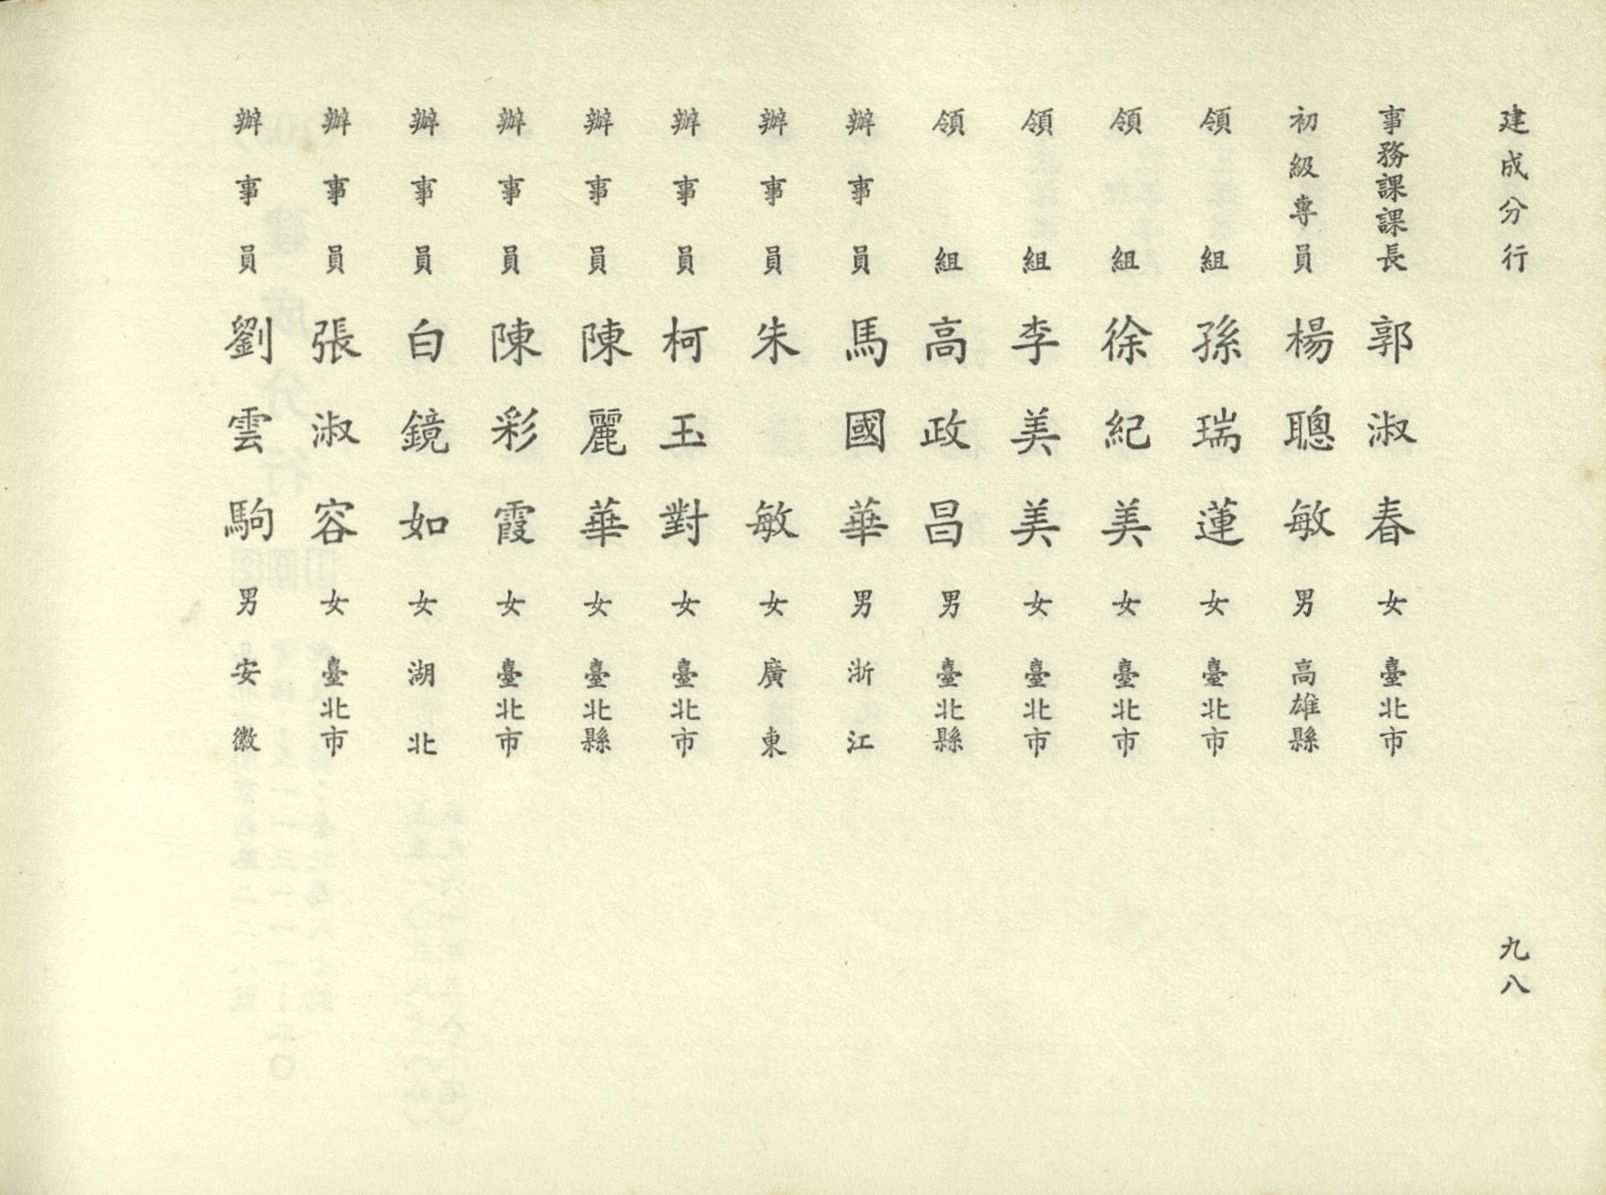 建成分行
九八
事務課課長 郭淑春 女 臺北市
初級專員 楊聰敏 男 高雄縣
領組 孫瑞蓮 女 臺北市
領組 徐紀美 女 臺北市
領組 李美美 女 臺北市
領組 高政昌 男 臺北縣
辦事員 馬國華 男 浙江
辦事員 朱敏 女 廣東
辦事員 柯玉對 女 臺北市
辦事員 陳麗華 女 臺北縣
辦事員 陳彩霞 女 臺北市
辦事員 白鏡如 女 湖北
辦事員 張淑容 女 臺北市
辦事員 劉雲駒 男 安徽